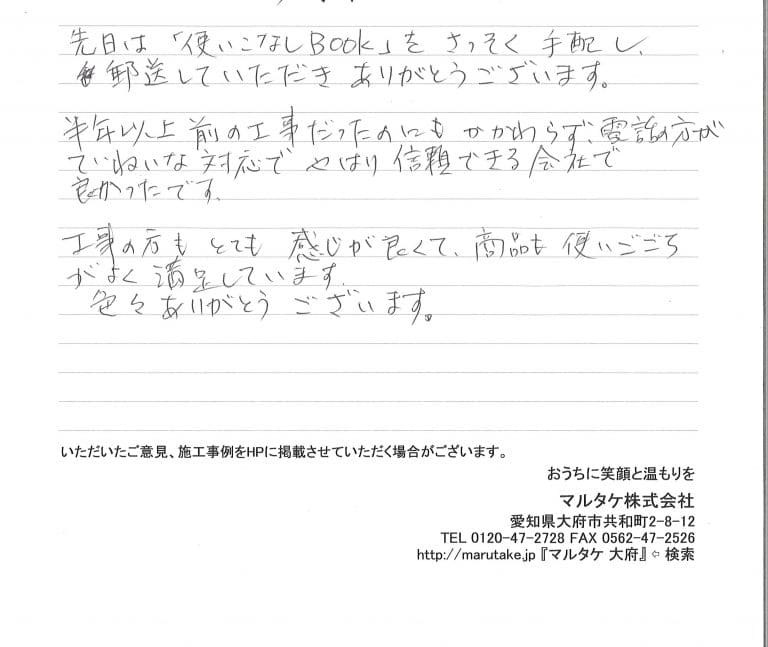 先日は「使いこなしBook」を さっそく 手配し、
郵送していただき ありがとうございます。
半年以上前の工事だったのにもかかわらず、電話の方が
ていねいな対応で やはり 信頼できる会社で
良かったです。
工事の方も とても 感じが良くて、商品も 使いごごち
がよく 満足しています。
色々ありがとう ございます。
いただいたご意見、施工事例をHPに掲載させていただく場合がございます。
おうちに笑顔と温もりを
マルタケ株式会社
愛知県大府市共和町2-8-12
TEL 0120-47-2728 FAX 0562-47-2526
http://marutake.jp 『マルタケ 大府』⇦ 検索